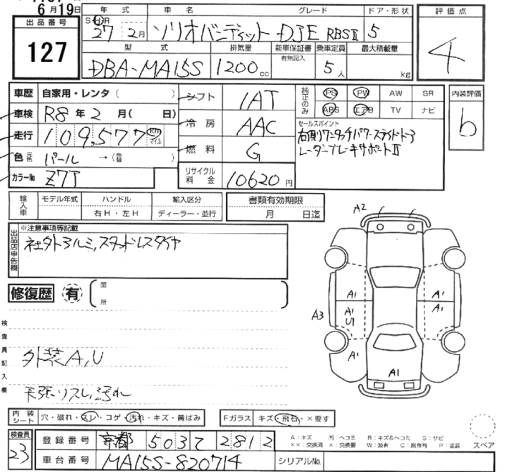 6月19日
出品番号
127
年式 車名 グレード ドア・形状
S H 27 2月 ソリオバンディット DJE RBSⅡ 5
型式 排気量 新車保証書 乗車定員 最大積載量
DBA-MA15S 1200cc 有無記入 5人 kg
評価点
4
車歴 自家用・レンタ( )
シフト IAT
車検 R8年2月( 日)
走行 109,577 km マイル
冷房 AAC
燃料 G
色 パール →( )
リサイクル料金 10620円
カラーNo Z7T
純正のみ PS PW AW SR
ABS エアB TV ナビ
セールスポイント
右側ワンタッチパワースライドドア
レーダーブレーキサポートⅡ
内装評価
b
輸入車 モデル年式 ハンドル 輸入区分 書類有効期限
右H・左H ディーラー・並行 月 日迄
出品店申告欄
※注意事項等記載
社外アルミ,スタッドレスタイヤ
修復歴 有 箇所
検査員記入欄
外装A,U
天張リスレ,汚れ
A2
A1 A1
A3 A1 U1 A1
A1 A1
A1
内装シート 穴・破れ・スレ・コゲ・汚れ・キズ・黄ばみ
Fガラス キズ・飛石・×要す
スペア
検査員
23
登録番号 京都 503て 2812
車台番号 MA15S-820714
シリアルNo.